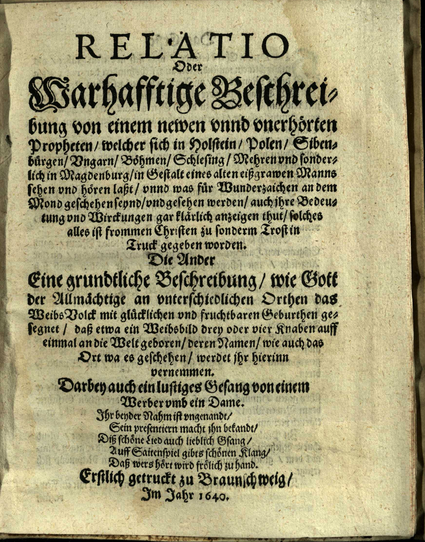 RELATIO
Oder
Warhafftige Beschrei-
bung von einem newen vnnd vnerhörten
Propheten/ welcher sich in Holstein/ Polen/ Siben-
bürgen/ Vngarn/ Böhmen/ Schlesing/ Mehren vnd sonder-
lich in Magdenburg/ in Gestalt eines alten eißgrawen Manns
sehen vnd hören laßt/ vnnd was für Wunderzaichen an dem
Mond geschehen seynd/ vnd gesehen werden/ auch jhre Bedeu-
tung vnd Wirckungen gar klärlich anzeigen thut/ solches
alles ist frommen Christen zu sonderm Trost in
Truck gegeben worden.
Die Ander
Eine grundtliche Beschreibung/ wie Gott
der Allmächtige an vnterschiedlichen Orthen das
Weibs Volck mit glücklichen vnd fruchtbaren Geburthen ge-
segnet/ daß etwa ein Weibsbild drey oder vier Knaben auff
einmal an die Welt geboren/ deren Namen/ wie auch das
Ort wa es geschehen/ werdet jhr hierinn
vernemmen.
Darbey auch ein lustiges Gesang von einem
Werber vmb ein Dame.
Jhr beyder Nahm ist vngenandt/
Sein presentiern macht jhn bekandt/
Diß schöne Lied auch lieblich Gsang/
Auff Saitenspiel gibts schönen Klang/
Daß wers hört wird frölich zu hand.
Erstlich getruckt zu Braunschweig/
Im Jahr 1640.